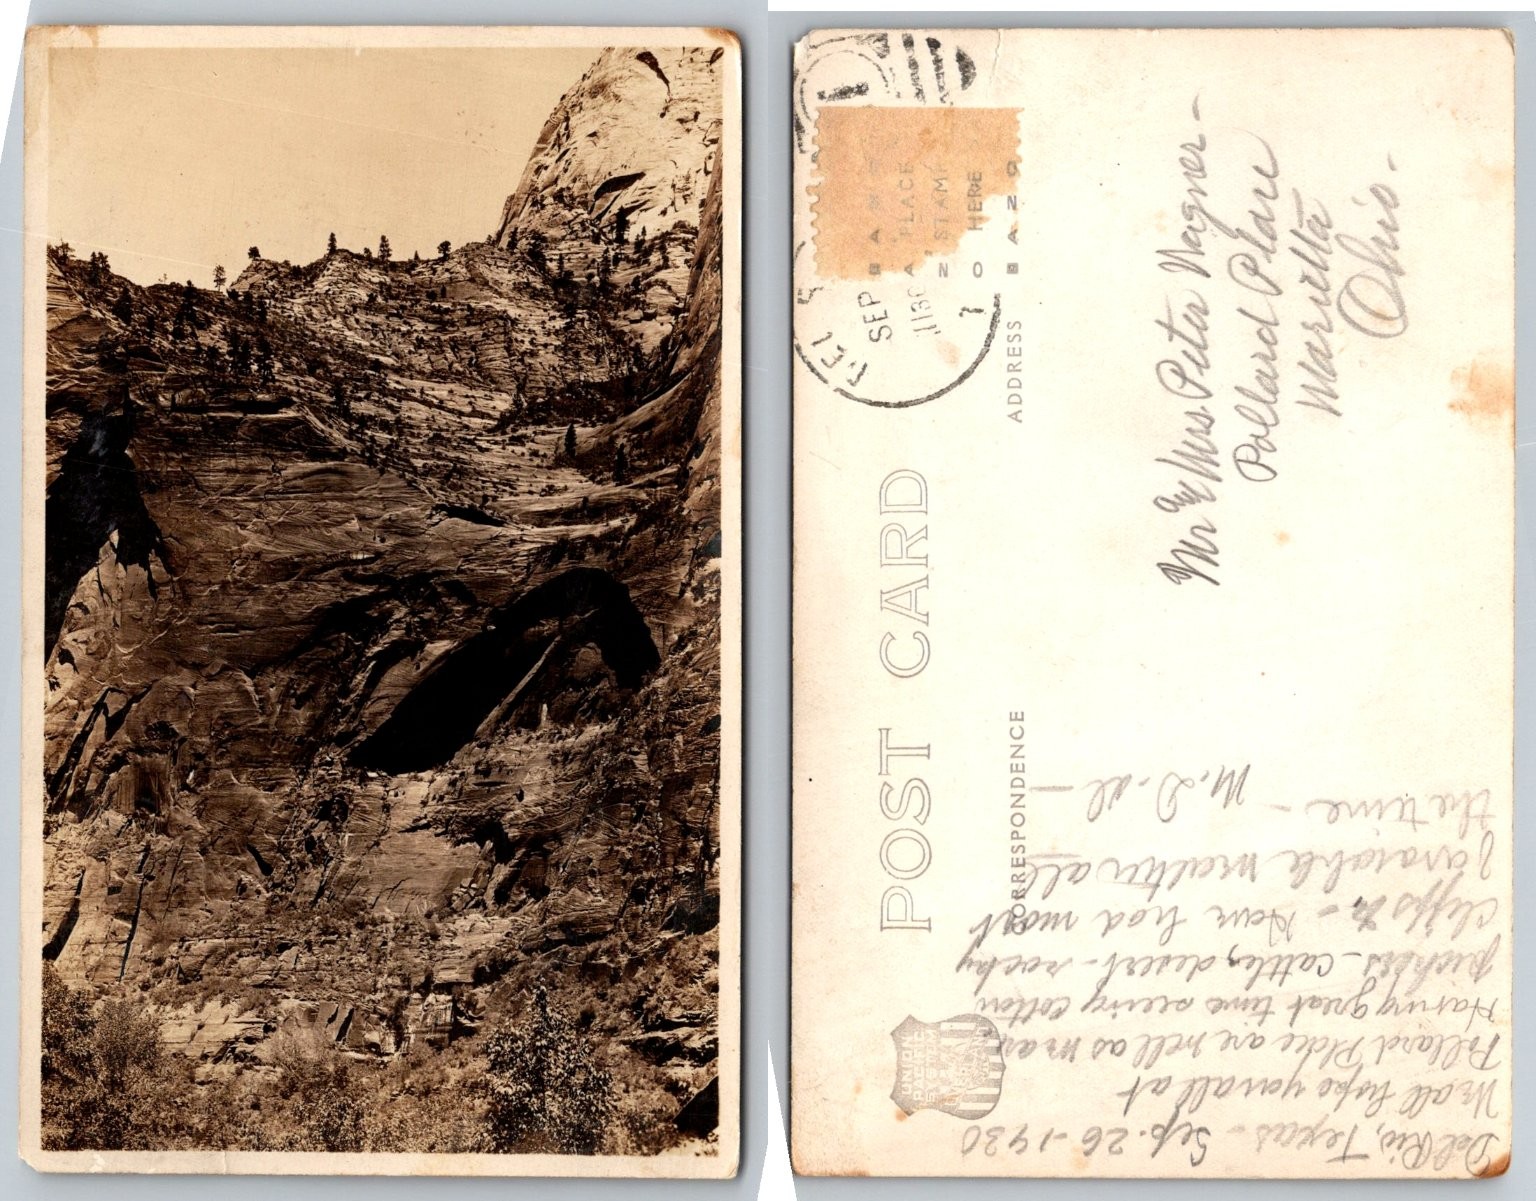 POST CARD
CORRESPONDENCE
ADDRESS
PLACE
STAMP
HERE
DEL
SEP
1130A
1
UNION
PACIFIC
SYSTEM
Mr & Mrs Peter Wagner-
Pollard Place
Marietta
Ohio-
Del Rio, Texas - Sep. 26 - 1930
We all hope you all at
Pollard Place are well as we are
Having great time seeing cotton
pickers - cattle, desert - rocky
cliffs - Have had most
favorable weather all
the time -